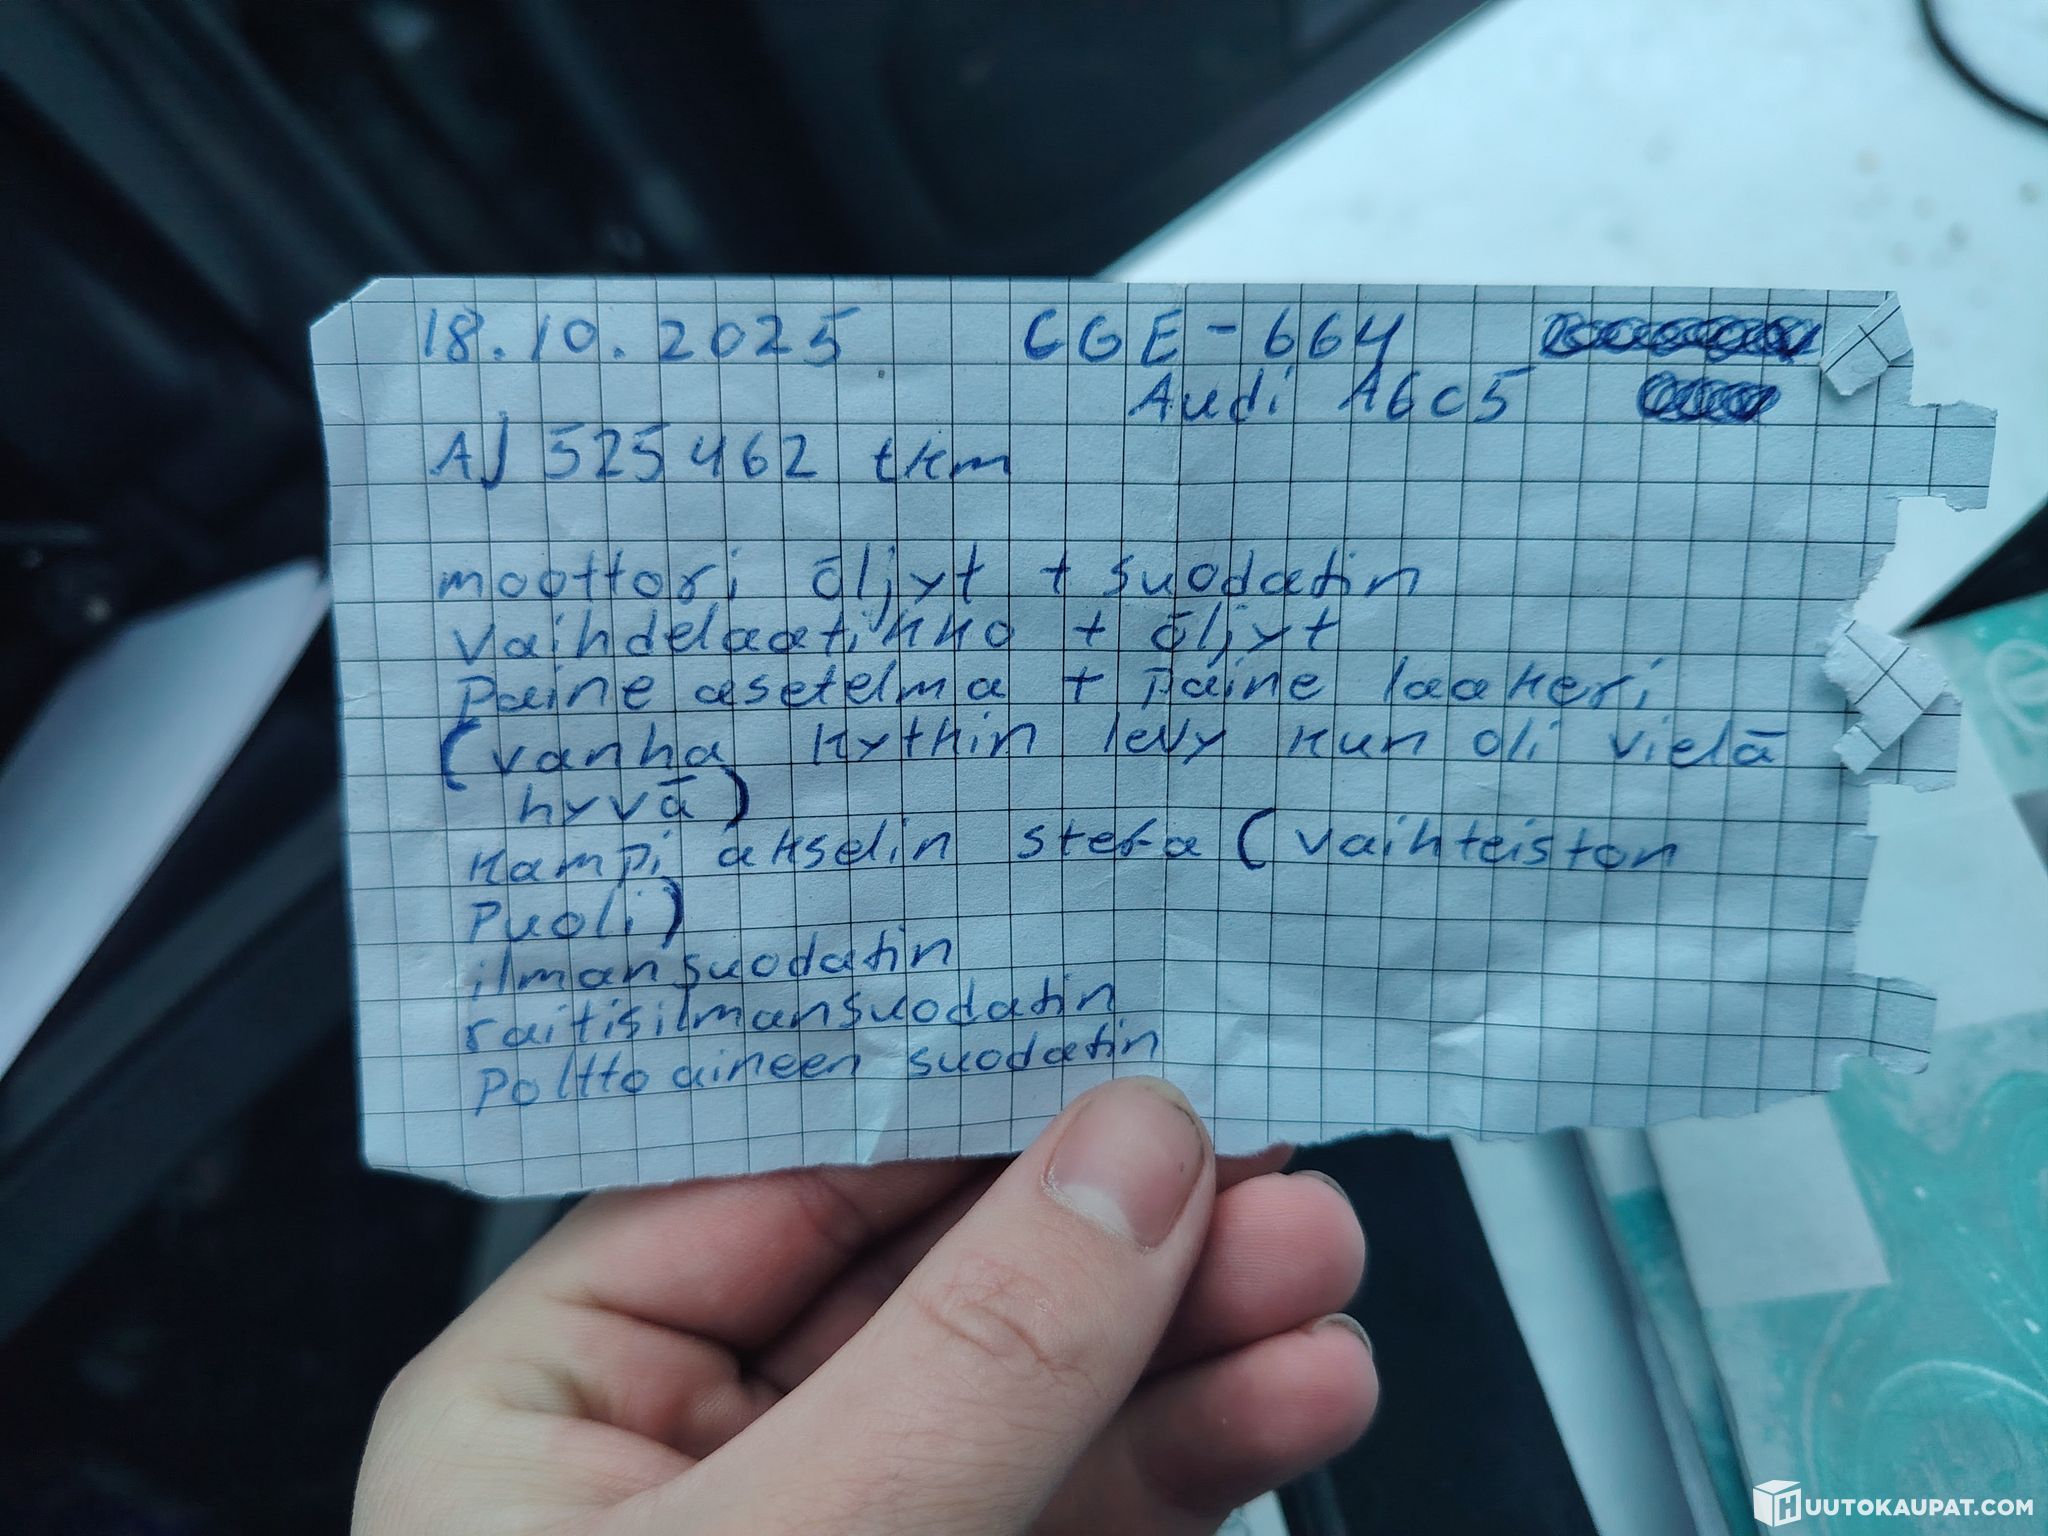 18.10.2025 CGE-664
Audi A6C5
AJ 525462 tkm
moottori öljyt + suodatin
vaihdelaatikko + öljyt
Paine asetelma + paine laakeri
(vanha kytkin levy kun oli vielä
hyvä)
kampi akselin stefa (vaihteiston
Puoli)
ilmansuodatin
raitisilmansuodatin
Polttoaineen suodatin
HUUTOKAUPAT.COM